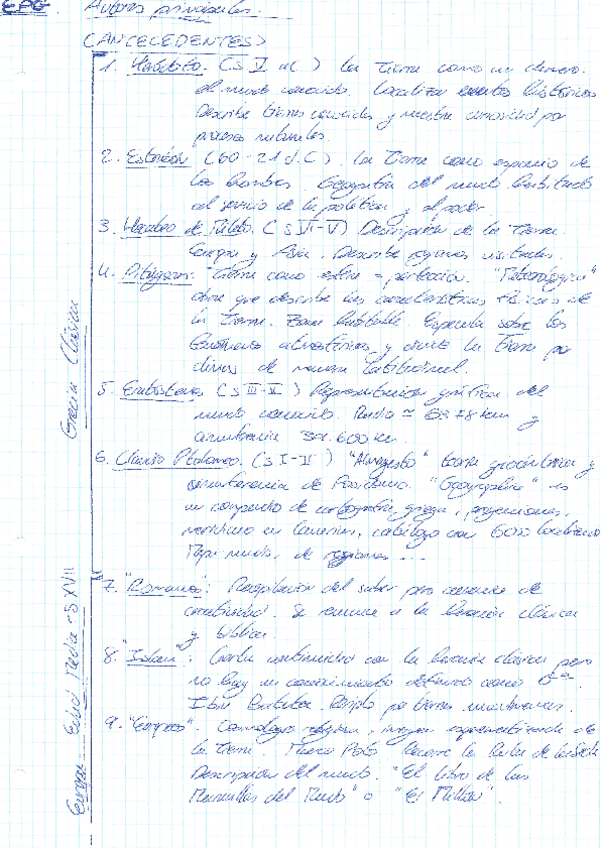 EPG. Autores principales.
(ANTECEDENTES)
1. Herodoto. (s V aC) La Tierra como un
el mundo conocido. Localiza eventos históricos
Describe tierras conocidas y muestra curiosidad por
procesos naturales.
2. Estrabón (60-21 d.C). La Tierra como espacio de
los hombres. Geografía del mundo habitado
al servicio de la política y el poder
3. Hecateo de Mileto. (s VI-V) Descripción de la Tierra.
Europa y Asia. Describe lugares visitados.
4. Pitágoras: Tierra como esfera = perfección. "Meteorológica"
obra que describe las características físicas de
la Tierra. Zona habitable. Especula sobre los
fenómenos atmosféricos y divide la Tierra por
climas de manera latitudinal.
5. Eratóstenes (s III-II) Representación gráfica del
mundo conocido. Radio ≃ 6378 km y
circunferencia 39.600 km.
6. Claudio Ptolomeo. (s I-II) "Almagesto" teoría geocéntrica y
circunferencia de Posidonio. "Geographia" es
un compendio de cartografía griega, proyecciones,
catálogo con 6000
Mapa mundi, de regiones ...
Grecia Clásica
7. "Romanos": Recopilación del saber pero carencia de
creatividad. Se remonta a la herencia clásica
y bíblica.
8. "Islam": Cierta continuidad con la herencia clásica pero
no hay un conocimiento definido como
Ibn Battuta. por tierras musulmanas.
9. "Europeos". Cosmología religiosa, imagen esquematizada de
la Tierra. Marco Polo Recorre la Ruta de la Seda
Descripción del mundo. "El libro de las
Maravillas del Mundo" o "El Millón".
Europa Edad Media - S XVII